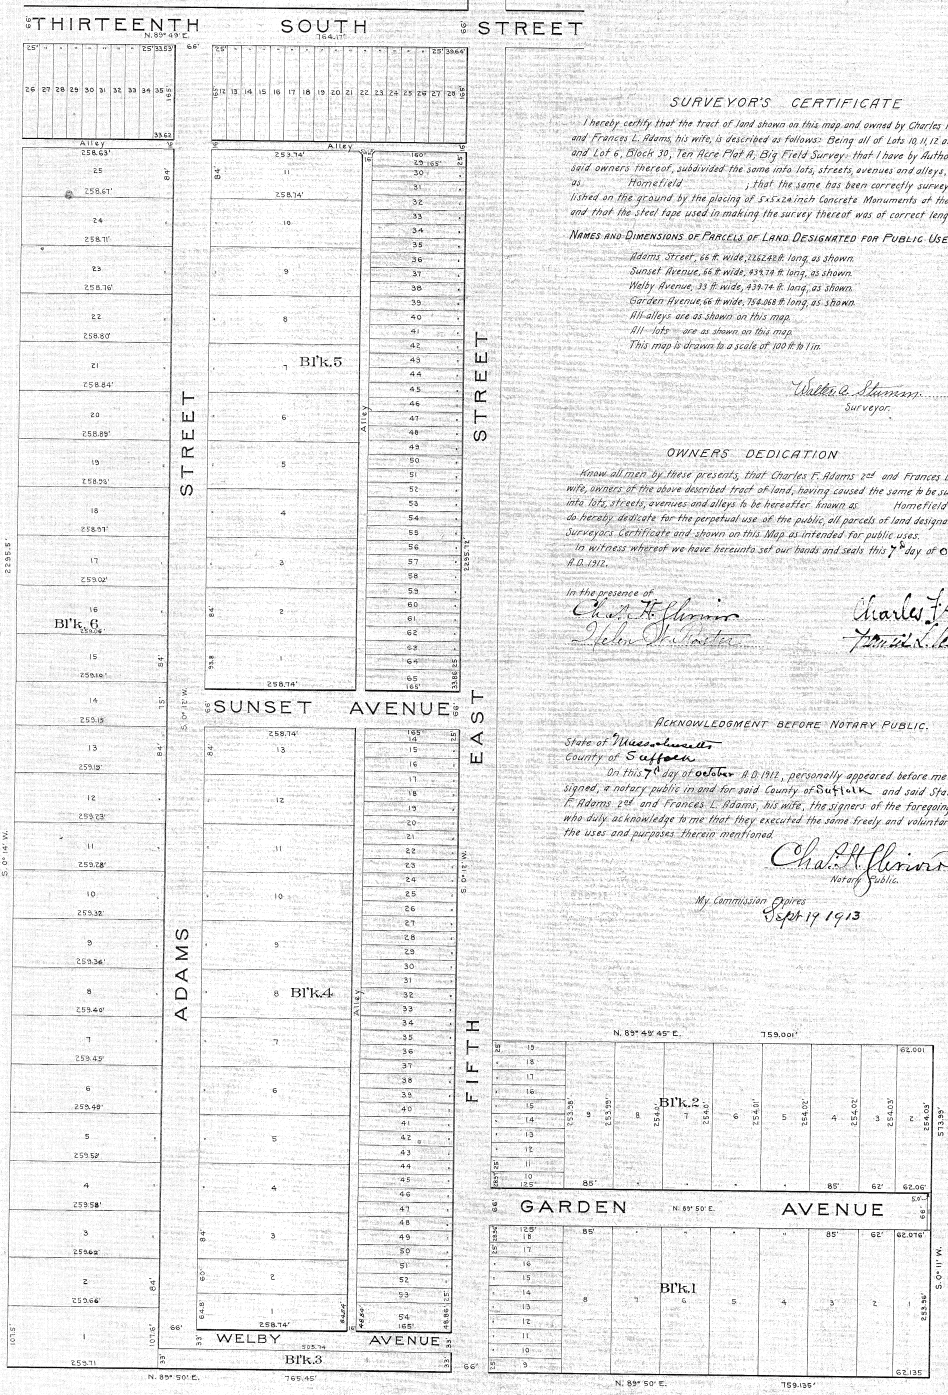 THIRTEENTH SOUTH STREET
N. 89° 49' E.
764.17'
66'
25' 33.53'
66'
25' 39.64'
26 27 28 29 30 31 32 33 34 35
165'
12 13 14 15 16 17 18 19 20 21 22 23 24 25 26 27 28
165'
33.62
Alley
Alley
258.63'
25
258.67'
24
258.71'
23
258.76'
22
258.80'
21
258.84'
20
258.89'
19
258.93'
18
258.97'
17
259.02'
16
Bl'k. 6
259.06'
15
259.10'
14
259.15'
13
259.19'
12
259.23'
11
259.28'
10
259.32'
9
259.36'
8
259.40'
7
259.45'
6
259.49'
5
259.53'
4
259.58'
3
259.62
2
259.66'
1
259.71
2295.5'
S. 0° 14' W.
107.5'
107.6'
84'
84'
15'
84'
84'
ADAMS STREET
S. 0° 12' W.
253.74'
11
258.74'
10
9
8
7
Bl'k.5
6
5
4
3
2
1
84'
84'
93.8
258.74'
Alley
160'
29 165'
25'
30
31
32
33
34
35
36
37
38
39
40
41
42
43
44
45
46
47
48
49
50
51
52
53
54
55
56
57
58
59
60
61
62
63
64
65
165'
33.86 25'
2295.32'
SUNSET AVENUE
66'
66'
258.74'
13
12
11
10
9
8 Bl'k.4
7
6
5
4
3
2
1
84'
84'
60'
64.8'
64.84'
258.74'
Alley
165'
25'
14
15
16
17
18
19
20
21
22
23
24
25
26
27
28
29
30
31
32
33
34
35
36
37
38
39
40
41
42
43
44
45
46
47
48
49
50
51
52
53
54
165'
48.84'
48.86 25'
FIFTH EAST STREET
S. 0° 12' W.
66'
33'
WELBY AVENUE
33'
505.74
33'
Bl'k.3
33'
66'
N. 89° 50' E.
765.45'
SURVEYOR'S CERTIFICATE
I hereby certify that the tract of land shown on this map and owned by Charles
and Frances L. Adams, his wife, is described as follows: Being all of Lots 10, 11, 12 a
and Lot 6, Block 30, Ten Acre Plat A, Big Field Survey: that I have by Autho
said owners thereof, subdivided the same into lots, streets, avenues and alleys,
as Homefield ; that the same has been correctly survey
lished on the ground by the placing of 5x5x24 inch Concrete Monuments at the
and that the steel tape used in making the survey thereof was of correct leng
NAMES AND DIMENSIONS OF PARCELS OF LAND DESIGNATED FOR PUBLIC USE
Adams Street, 66 ft. wide, 2262.42 ft. long, as shown.
Sunset Avenue, 66 ft. wide, 439.74 ft. long, as shown.
Welby Avenue, 33 ft. wide, 439.74 ft. long, as shown.
Garden Avenue, 66 ft. wide, 754.068 ft. long, as shown.
All alleys are as shown on this map.
All lots are as shown on this map.
This map is drawn to a scale of 100 ft. to 1 in.
Surveyor.
OWNERS DEDICATION
Know all men by these presents, that Charles F. Adams 2nd and Frances L
wife, owners of the above described tract of land, having caused the same to be su
into lots, streets, avenues and alleys to be hereafter known as Homefield
do hereby dedicate for the perpetual use of the public, all parcels of land designa
Surveyors Certificate and shown on this Map as intended for public uses.
In witness whereof we have hereunto set our hands and seals this 7th day of O
A.D. 1912.
In the presence of
Charles F.
ACKNOWLEDGMENT BEFORE NOTARY PUBLIC.
State of Massachusetts
County of Suffolk
On this 7th day of October A.D. 1912, personally appeared before me
signed, a notary public in and for said County of Suffolk and said Sta
F. Adams 2nd and Frances L. Adams, his wife, the signers of the foregoing
who duly acknowledge to me that they executed the same freely and voluntar
the uses and purposes therein mentioned.
Notary Public.
My Commission Expires
Sept 19 1913
N. 89° 49' 45" E. 759.001'
25'
19
18
17
16
15
14
13
12
11
10
125'
25'
253.98'
9
253.99'
8
254.0'
Bl'k.2
7
6
254.01'
5
254.02'
4
254.02'
3
254.03'
2
254.03'
62.001
573.99'
85' 85' 62' 62.06'
GARDEN N. 89° 50' E. AVENUE
66'
5.0'
66'
125'
18
17
16
15
14
13
12
11
10
9
25'
25'
85' 85' 62' 62.076'
Bl'k.1
8 7 6 5 4 3 2
253.96'
S. 0° 11' W.
62.135
N. 89° 50' E. 759.135'